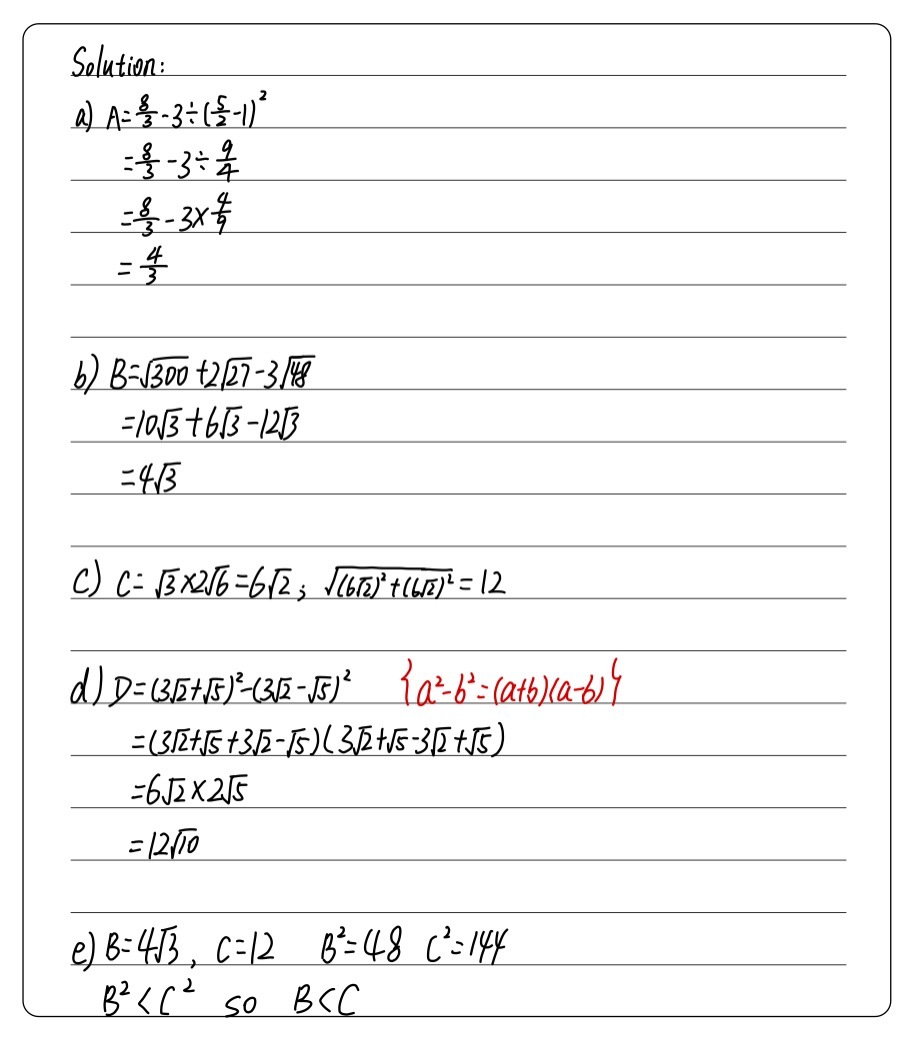 Solution:
a) A=8/3-3÷(5/2-1)²
=8/3-3÷9/4
=8/3-3×4/9
=4/3
b) B=√300+2√27-3√48
=10√3+6√3-12√3
=4√3
c) C=√3×2√6=6√2; √((6√2)²+(6√2)²)=12
d) D=(3√2+√5)²-(3√2-√5)² {a²-b²=(a+b)(a-b)}
=(3√2+√5+3√2-√5)(3√2+√5-3√2+√5)
=6√2×2√5
=12√10
e) B=4√3, C=12 B²=48 C²=144
B²<C² so B<C